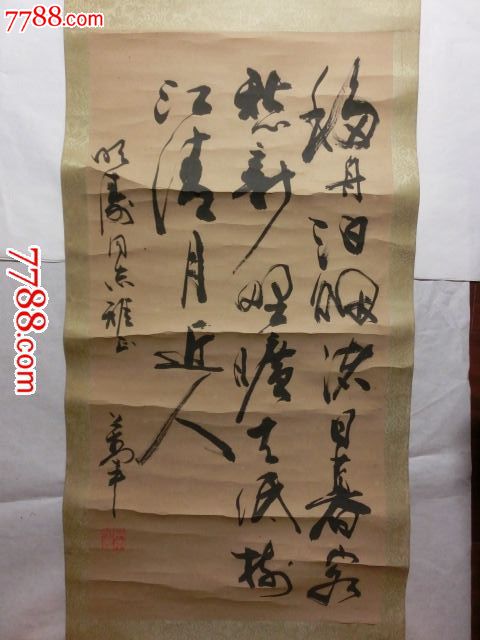 7788.com
移舟泊烟渚日暮客
愁新野曠天低樹
江清月近人
明濤同志雅正
7788.com